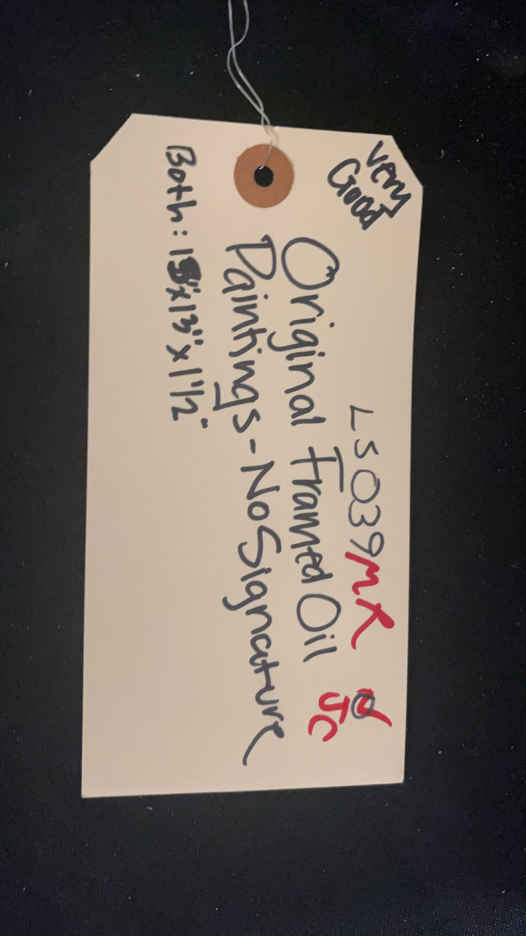 Very
Good
LS039 MR
JC
Original Framed Oil
Paintings - No Signature
Both: 13" x 13" x 1 1/2"